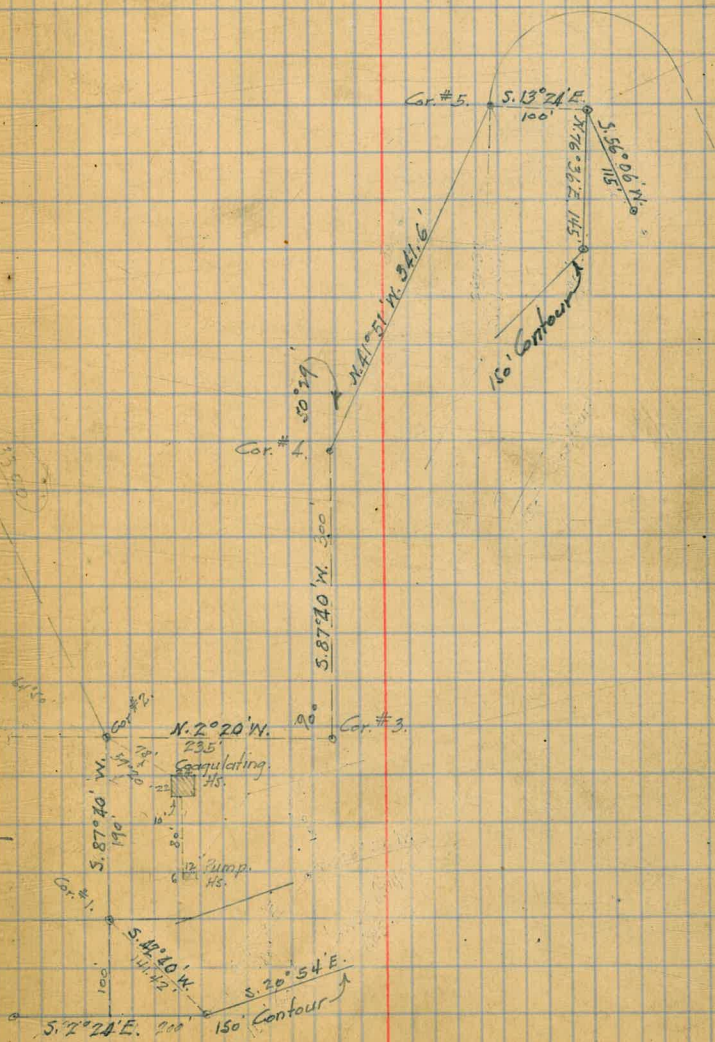 Cor. #5.
S. 13° 24' E.
100'
N. 76° 36' E. 145'
S. 59° 06' W.
115'
N. 41° 51' W. 341.6'
150' Contour
50° 29'
Cor. #4.
S. 87° 40' W. 300'
90°
Cor. #3.
Cor. #2.
N. 2° 20' W.
235'
Coagulating.
Hs.
S. 87° 40' W.
190'
80'
12'
Pump.
Hs.
Cor. #1.
S. 42° 40' W.
141.42'
100'
S. 20° 54' E.
150' Contour
S. 2° 24' E. 200'